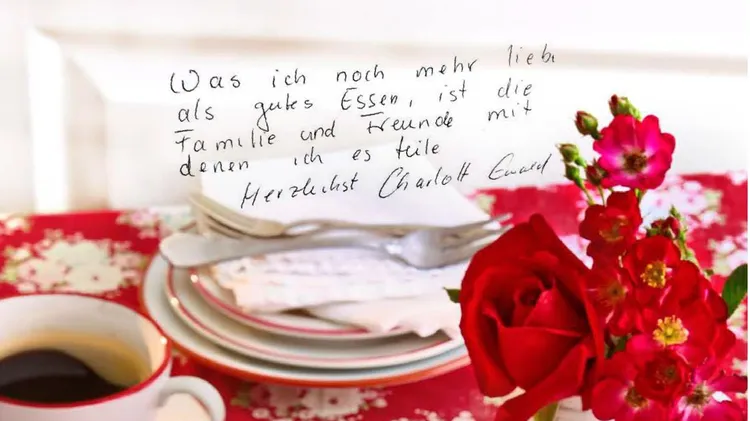 Was ich noch mehr liebe
als gutes Essen, ist die
Familie und Freunde mit
denen ich es teile
Herzlichst Charlott